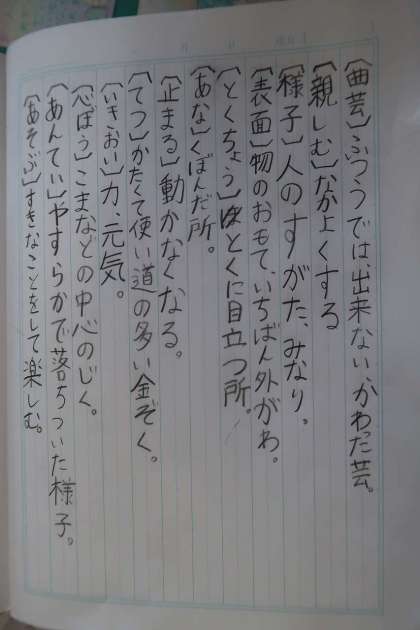 〔曲芸〕ふつうでは、出来ない、かわった芸。
〔親しむ〕なかよくする
〔様子〕人のすがた、みなり。
〔表面〕物のおもて、いちばん外がわ。
〔とくちょう〕ほとくに目立つ所。
〔あな〕くぼんだ所。
〔止まる〕動かなくなる。
〔てつ〕かたくて使い道の多い金ぞく。
〔いきおい〕力、元気。
〔心ぼう〕こまなどの中心のじく。
〔あんてい〕やすらかで落ちついた様子。
〔あそぶ〕すきなことをして楽しむ。